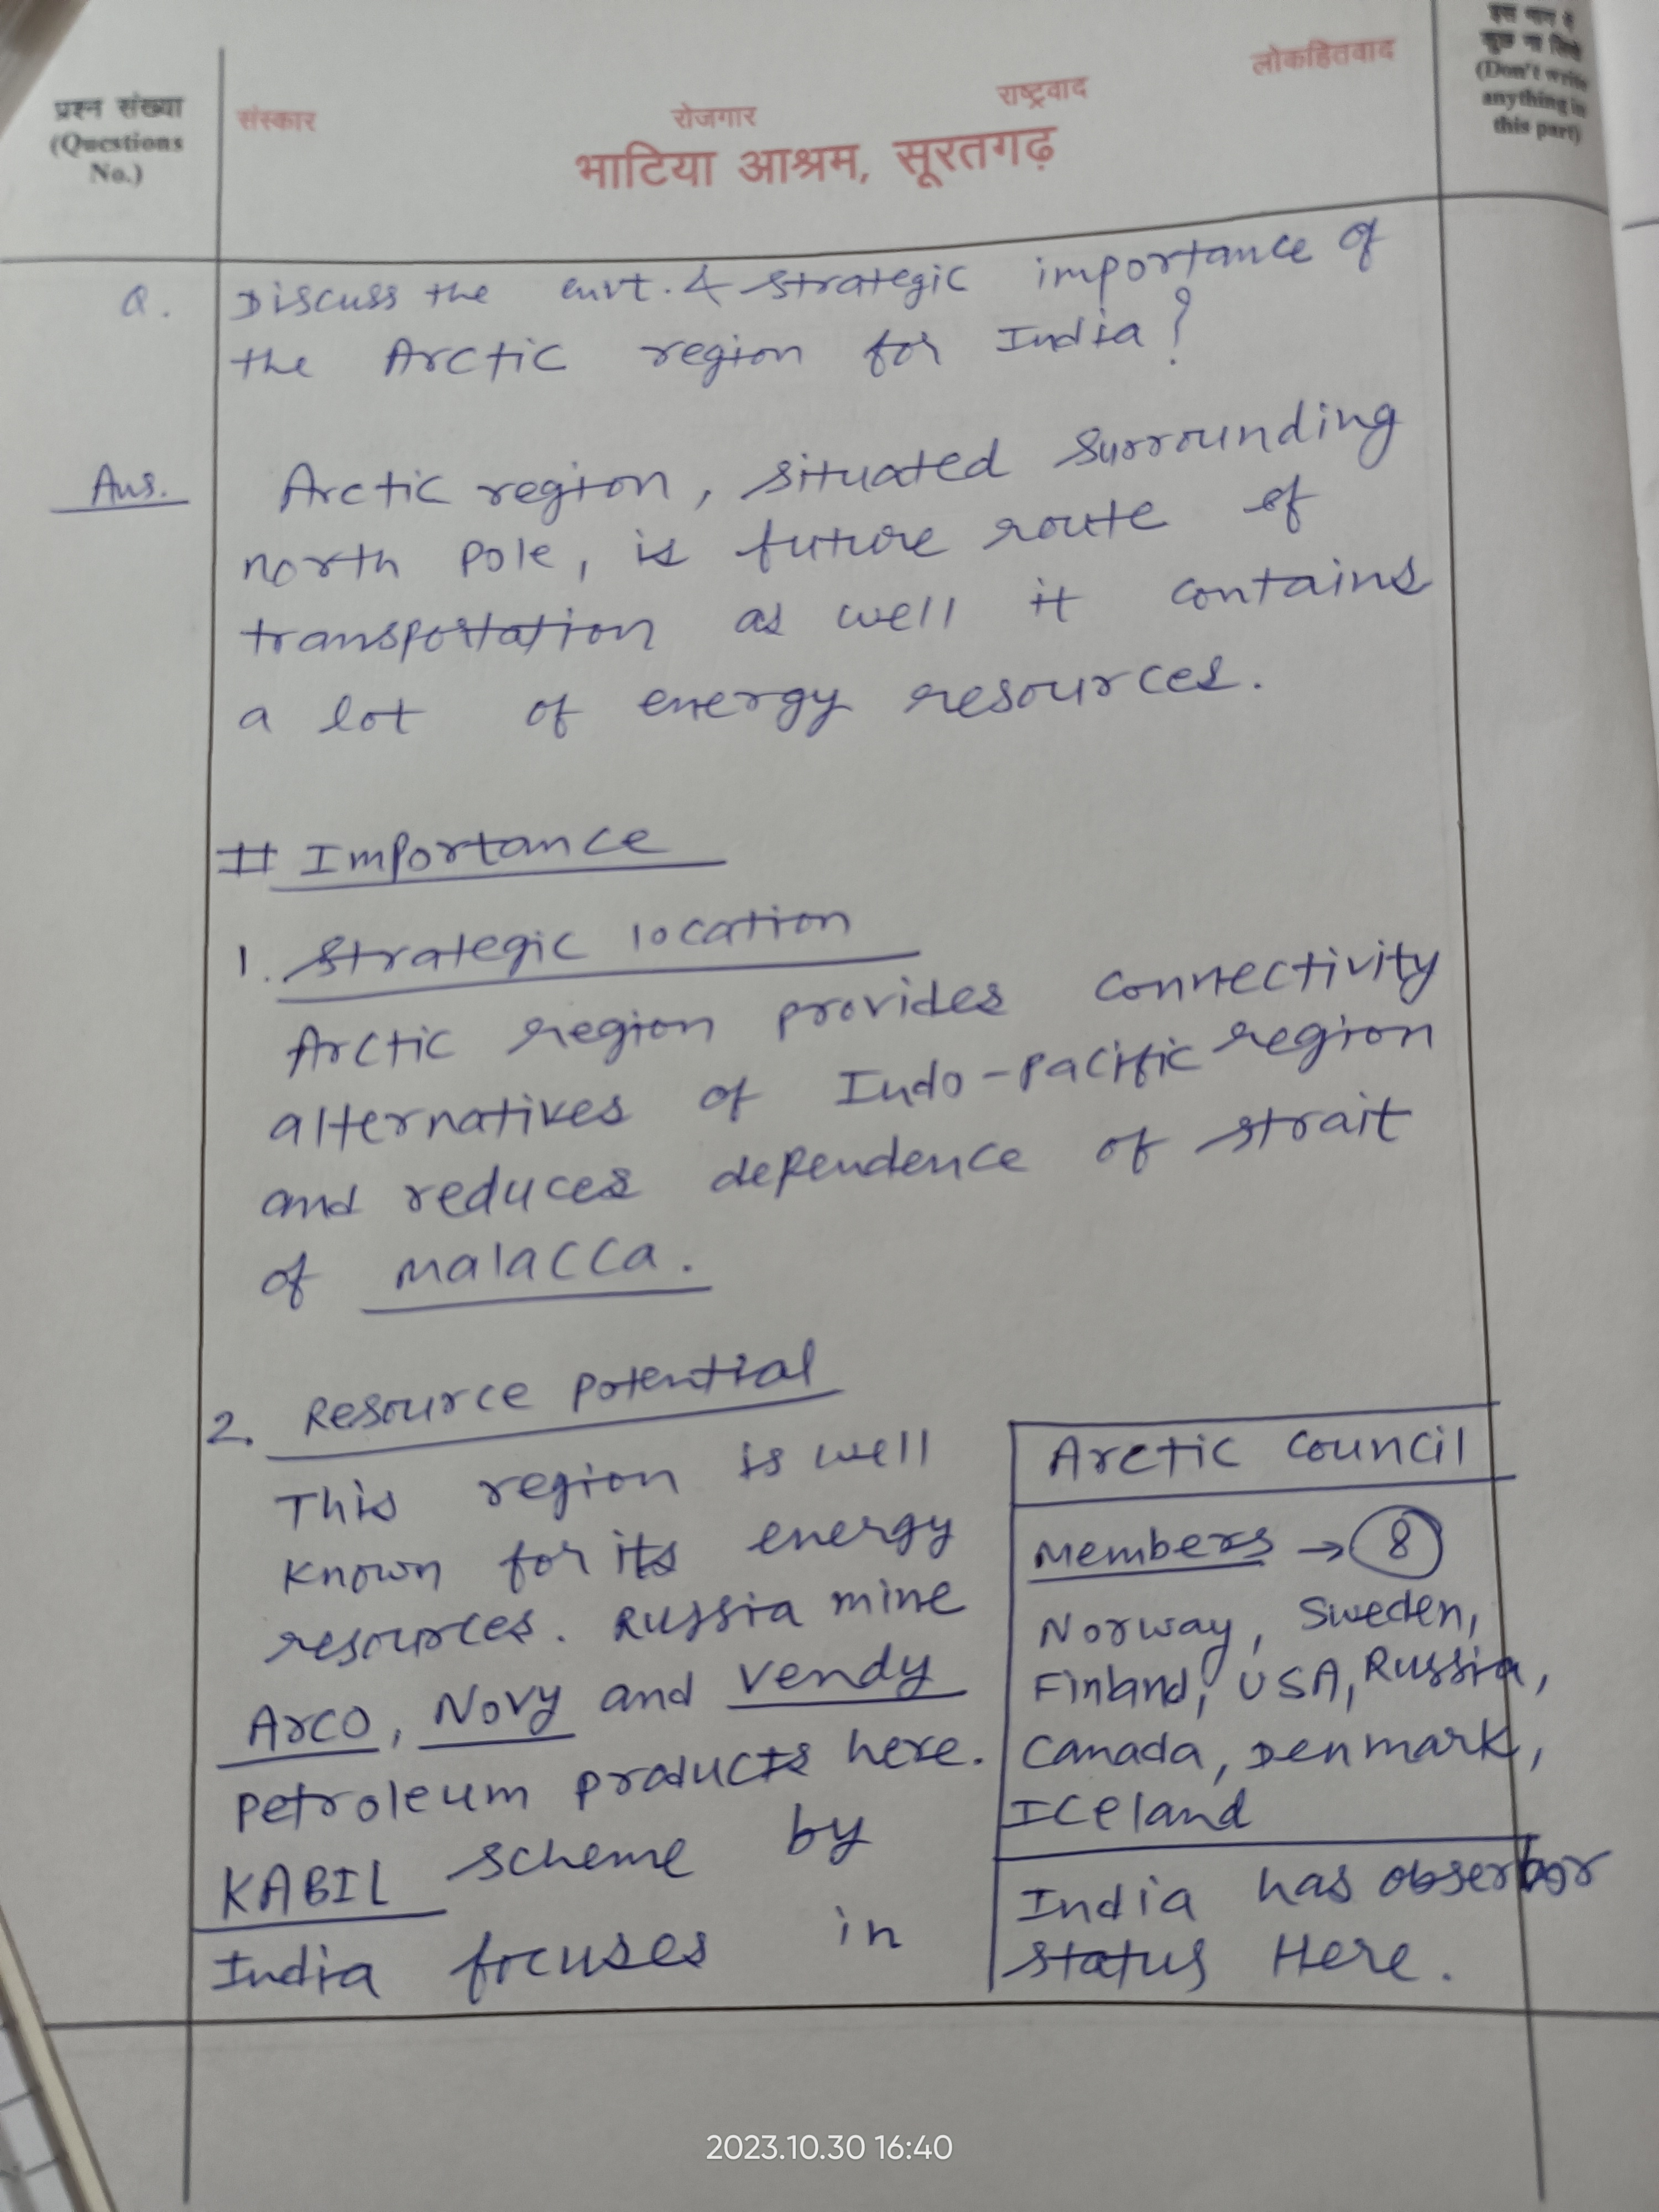 इस भाग में
कुछ ना लिखें
(Don't write
anything in
this part)
प्रश्न संख्या
(Questions
No.)
संस्कार
रोजगार
राष्ट्रवाद
लोकहितवाद
भाटिया आश्रम, सूरतगढ़
Q. Discuss the envt. & strategic importance of
the Arctic region for India?
Ans. Arctic region, situated surrounding
north pole, is future route of
transportation as well it contains
a lot of energy resources.
# Importance
1. Strategic location
Arctic region provides connectivity
alternatives of Indo-pacific region
and reduces dependence of strait
of malacca.
2. Resource potential
This region is well
known for its energy
resources. Russia mine
Arco, Novy and vendy
petroleum products here.
KABIL scheme by
India focuses in
Arctic council
Members → 8
Norway, Sweden,
Finland, USA, Russia,
Canada, Denmark,
Iceland
India has obserbor
status Here.
2023.10.30 16:40